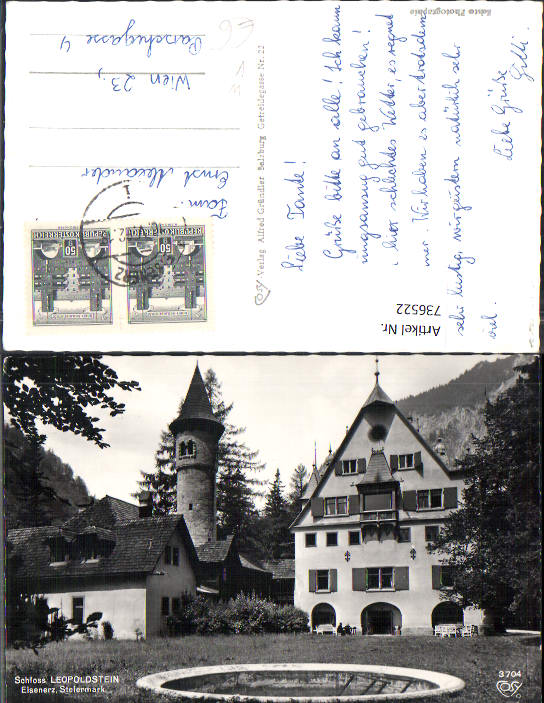 Echte Photographie
Liebe Tante!
Grüße bitte an alle! Ich kann
gut gebrauchen!
hier schlechtes Wetter, es regnet
Wir haben es aber trotzdem
sehr lustig, vorgestern natürlich sehr
viel.
Liebe Grüße
Gitti
Verlag Alfred Gründler Salzburg Getreidegasse Nr. 22
Fam.
Ernst Alexander
Wien 23.,
4
REPUBLIK ÖSTERREICH
50 g
REPUBLIK ÖSTERREICH
50 g
Artikel Nr.
736522
Schloss LEOPOLDSTEIN
Eisenerz, Steiermark
3704